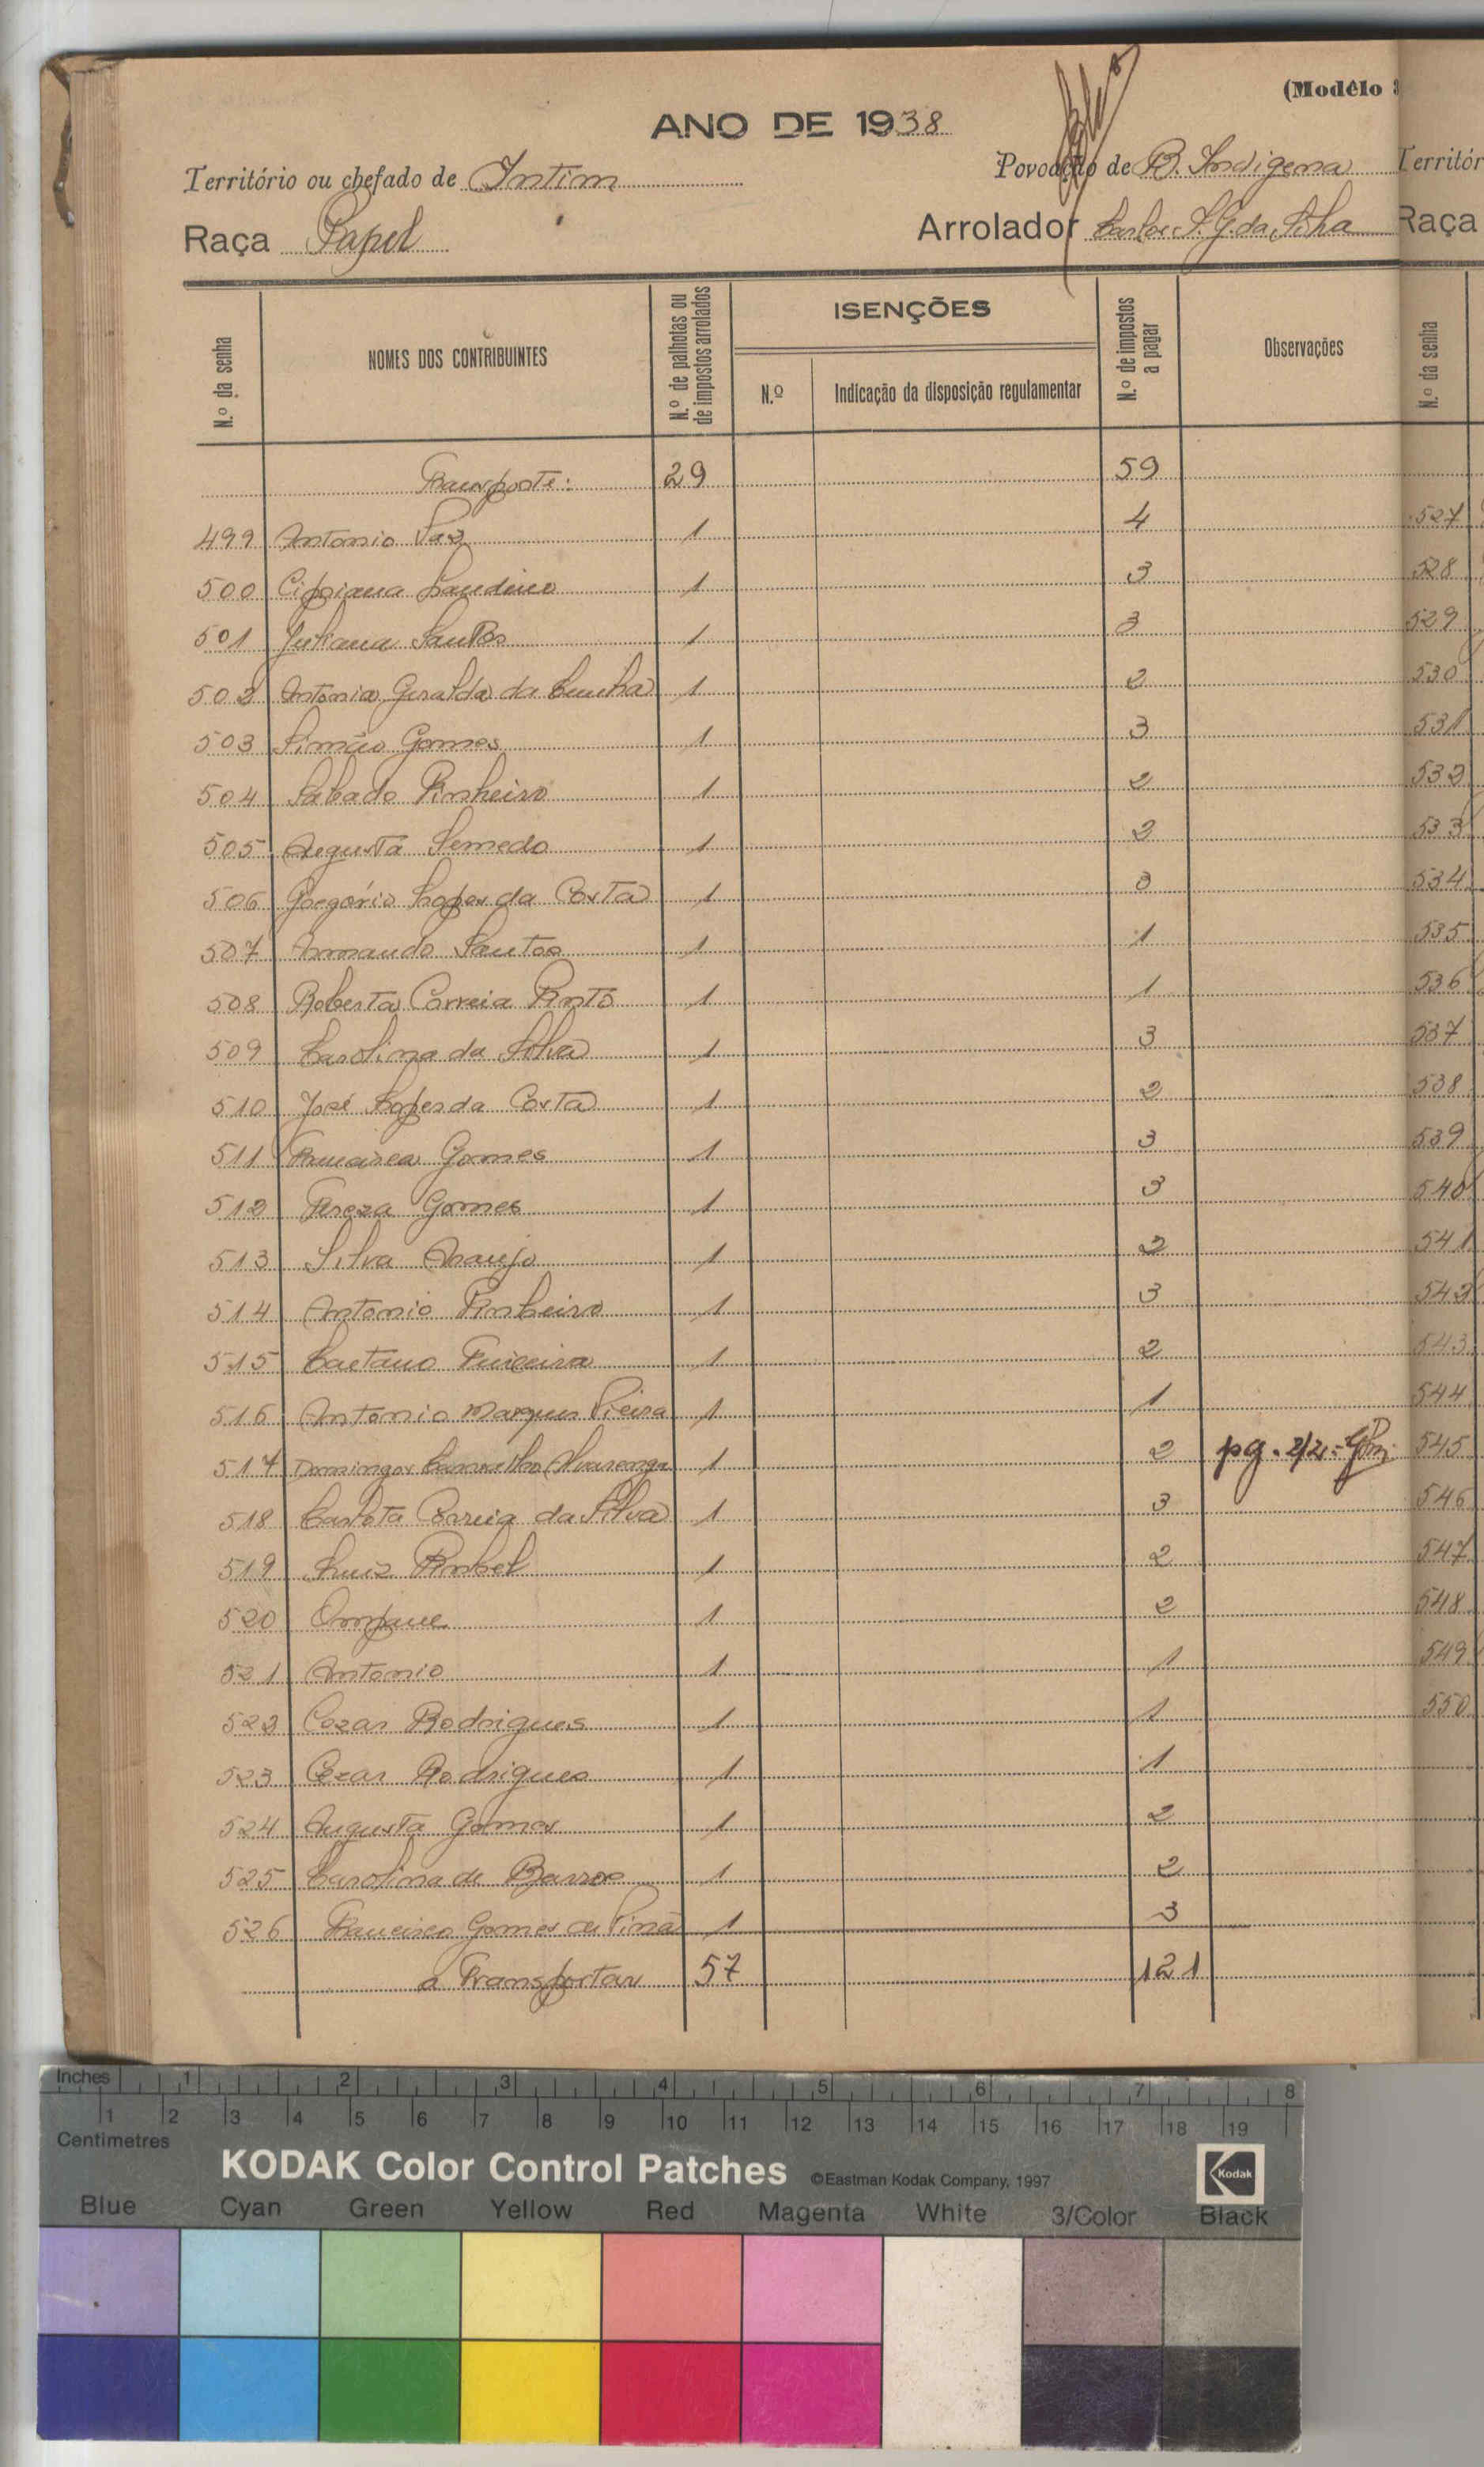 (Modêlo 3
ANO DE 1938
Território ou chefado de Intim
Povoação de B. Indigena
Territór
Raça Papel
Arrolador Carlos S. G. da Silva
Raça
N.º da senha
NOMES DOS CONTRIBUINTES
N.º de palhotas ou de impostos arrolados
ISENÇÕES
N.º
Indicação da disposição regulamentar
N.º de impostos a pagar
Observações
N.º da senha
Transporte: 29 59
499 Antonio Vaz 1 4 527
500 Cipriana 1 3 528
501 Juliana Santos 1 3 529
502 Antonia Geralda da Cunha 1 2 530
503 Simão Gomes 1 3 531
504 Sabado Pinheiro 1 2 532
505 Augusta Semedo 1 2 533
506 Gregório Lopes da Costa 1 3 534
507 Armando Santos 1 1 535
508 Roberta Correia Pinto 1 1 536
509 Carolina da Silva 1 3 537
510 José Lopes da Costa 1 2 538
511 Francisca Gomes 1 3 539
512 Tereza Gomes 1 3 540
513 Silva Araujo 1 2 541
514 Antonio Pinheiro 1 3 542
515 Caetano Teixeira 1 2 543
516 Antonio Marques Vieira 1 1 544
517 Domingos Carvalho Alvarenga 1 2 pg. 2/2 = 545
518 Carlota Correia da Silva 1 3 546
519 Luiz Pinhel 1 2 547
520 1 2 548
521 Antonio 1 1 549
522 Cezar Rodrigues 1 1 550
523 Cezar Rodrigues 1 1
524 Augusta Gomes 1 2
525 Carolina de Barros 1 2
526 Francisco Gomes de Pina 1 3
a Transportar 57 121
Inches 1 2 3 4 5 6 7 8
1 2 3 4 5 6 7 8 9 10 11 12 13 14 15 16 17 18 19
Centimetres
KODAK Color Control Patches ©Eastman Kodak Company, 1997 Kodak
Blue Cyan Green Yellow Red Magenta White 3/Color Black